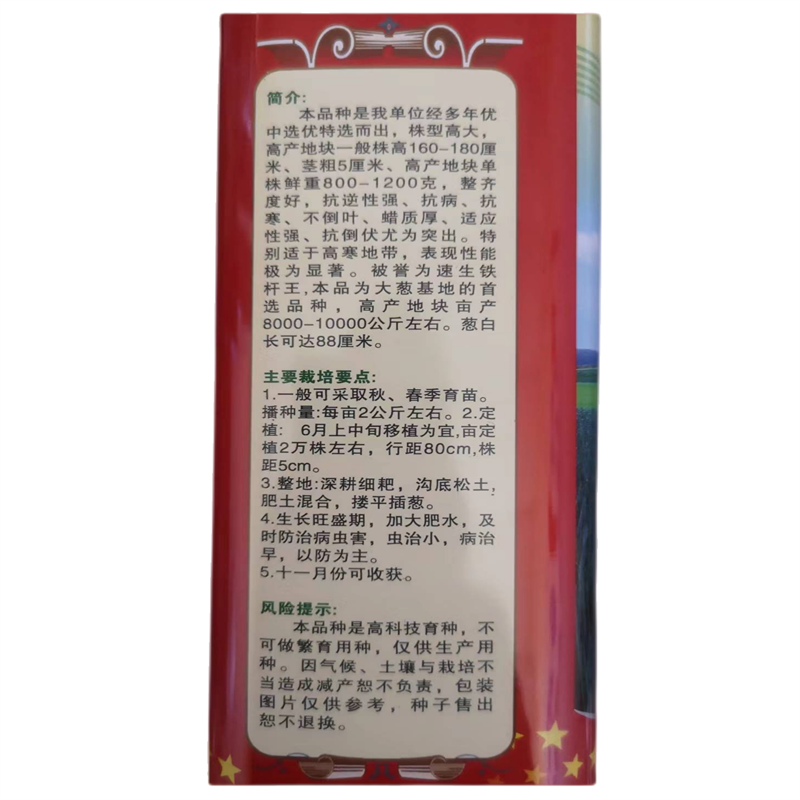 简介:
本品种是我单位经多年优
中选优特选而出，株型高大，
高产地块一般株高160-180厘
米、茎粗5厘米、高产地块单
株鲜重800-1200克，整齐
度好，抗逆性强、抗病、抗
寒、不倒叶、蜡质厚、适应
性强、抗倒伏尤为突出。特
别适于高寒地带，表现性能
极为显著。被誉为速生铁
杆王,本品为大葱基地的首
选品种，高产地块亩产
8000-10000公斤左右。葱白
长可达88厘米。
主要栽培要点:
1.一般可采取秋、春季育苗。
播种量:每亩2公斤左右。2.定
植: 6月上中旬移植为宜,亩定
植2万株左右，行距80cm,株
距5cm。
3.整地:深耕细耙，沟底松土,
肥土混合，搂平插葱。
4.生长旺盛期，加大肥水，及
时防治病虫害，虫治小，病治
早，以防为主。
5.十一月份可收获。
风险提示:
本品种是高科技育种，不
可做繁育用种，仅供生产用
种。因气候、土壤与栽培不
当造成减产恕不负责，包装
图片仅供参考，种子售出
恕不退换。